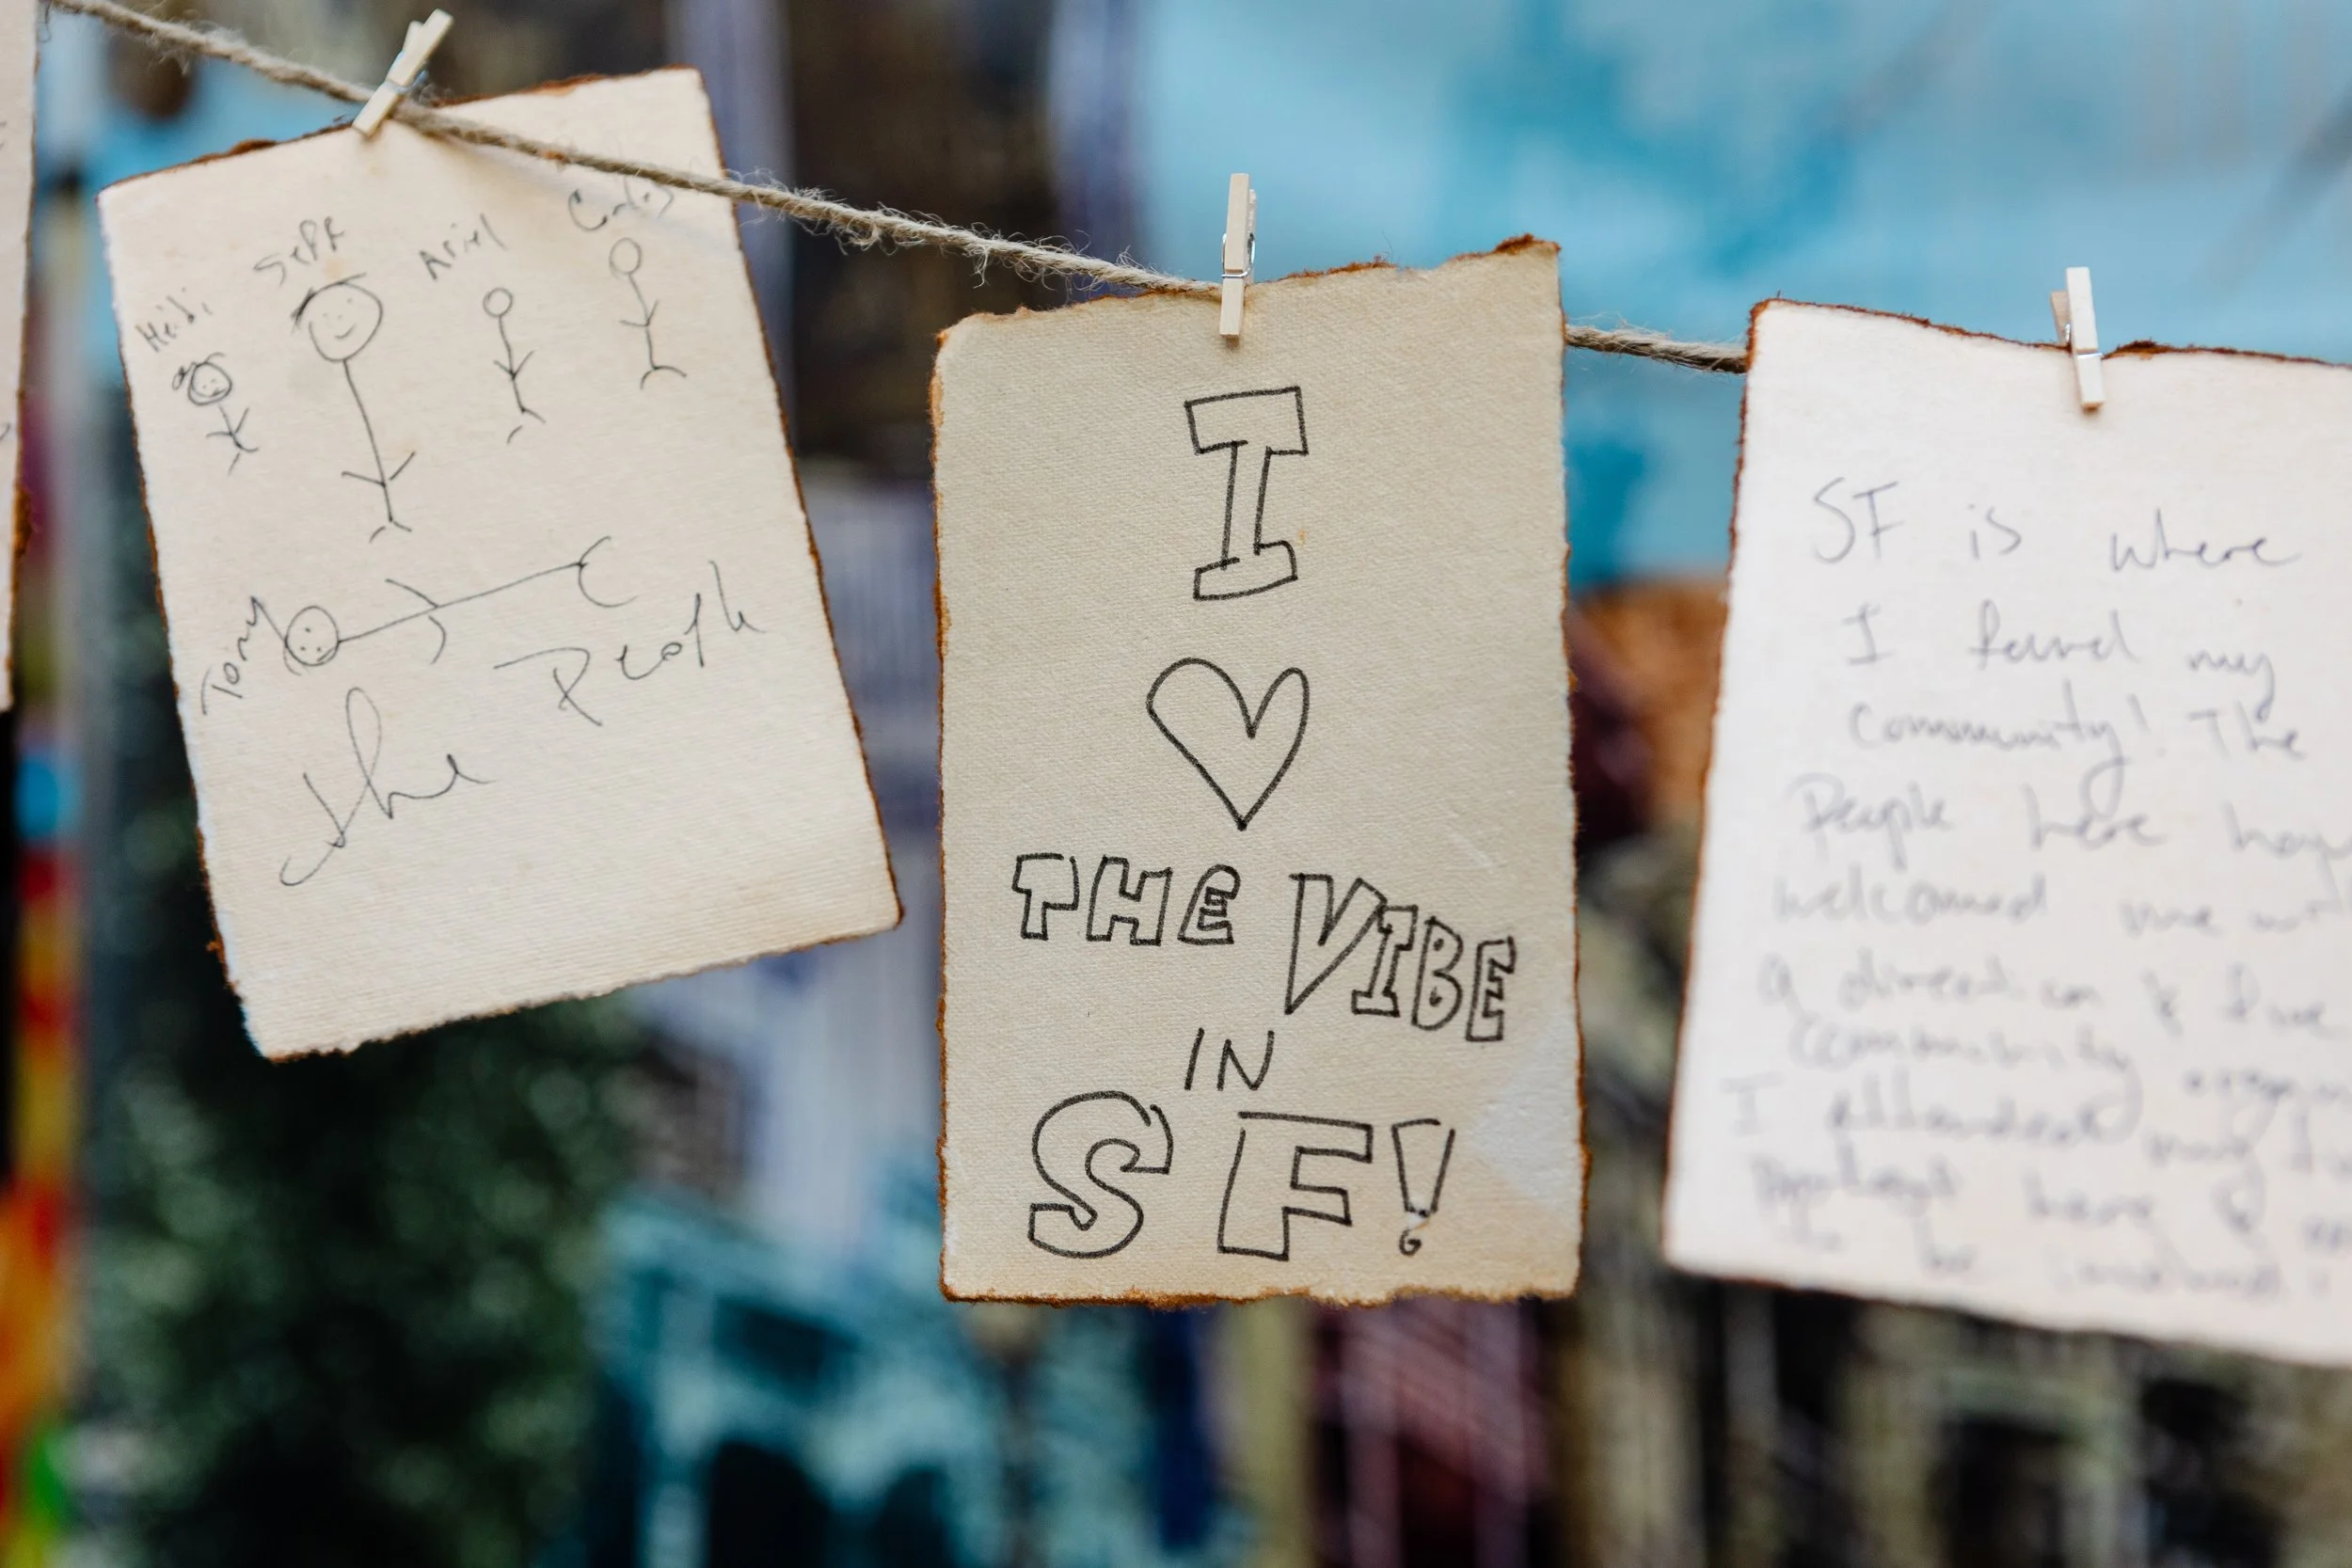 Heidi
Seff
Ariel
Carlos
Tony
the People
I
♥
THE VIBE
IN
SF!
SF is where
I found my
Community! The
People here have
welcomed me
a direction &
community
I attended my
here &
be